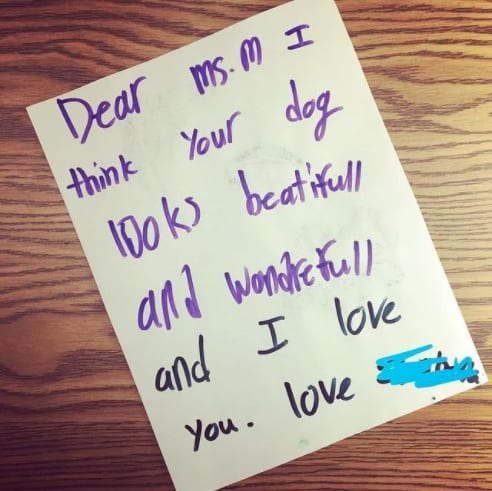 Dear ms. m I
think your dog
looks beatifull
and wondrefull
and I love
you. love